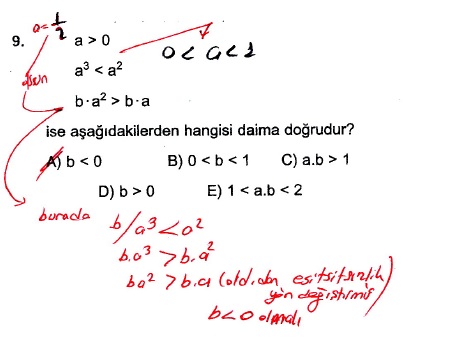 a=1/2
9. a > 0
0 < a < 1
a³ < a²
olsun
b·a² > b·a
ise aşağıdakilerden hangisi daima doğrudur?
A) b < 0 B) 0 < b < 1 C) a.b > 1
D) b > 0 E) 1 < a.b < 2
burada b/a³ < a²
b.a³ > b.a²
ba² > b.a (old.dan eşitsizlik
yön değiştirmiş)
b < 0 olmalı